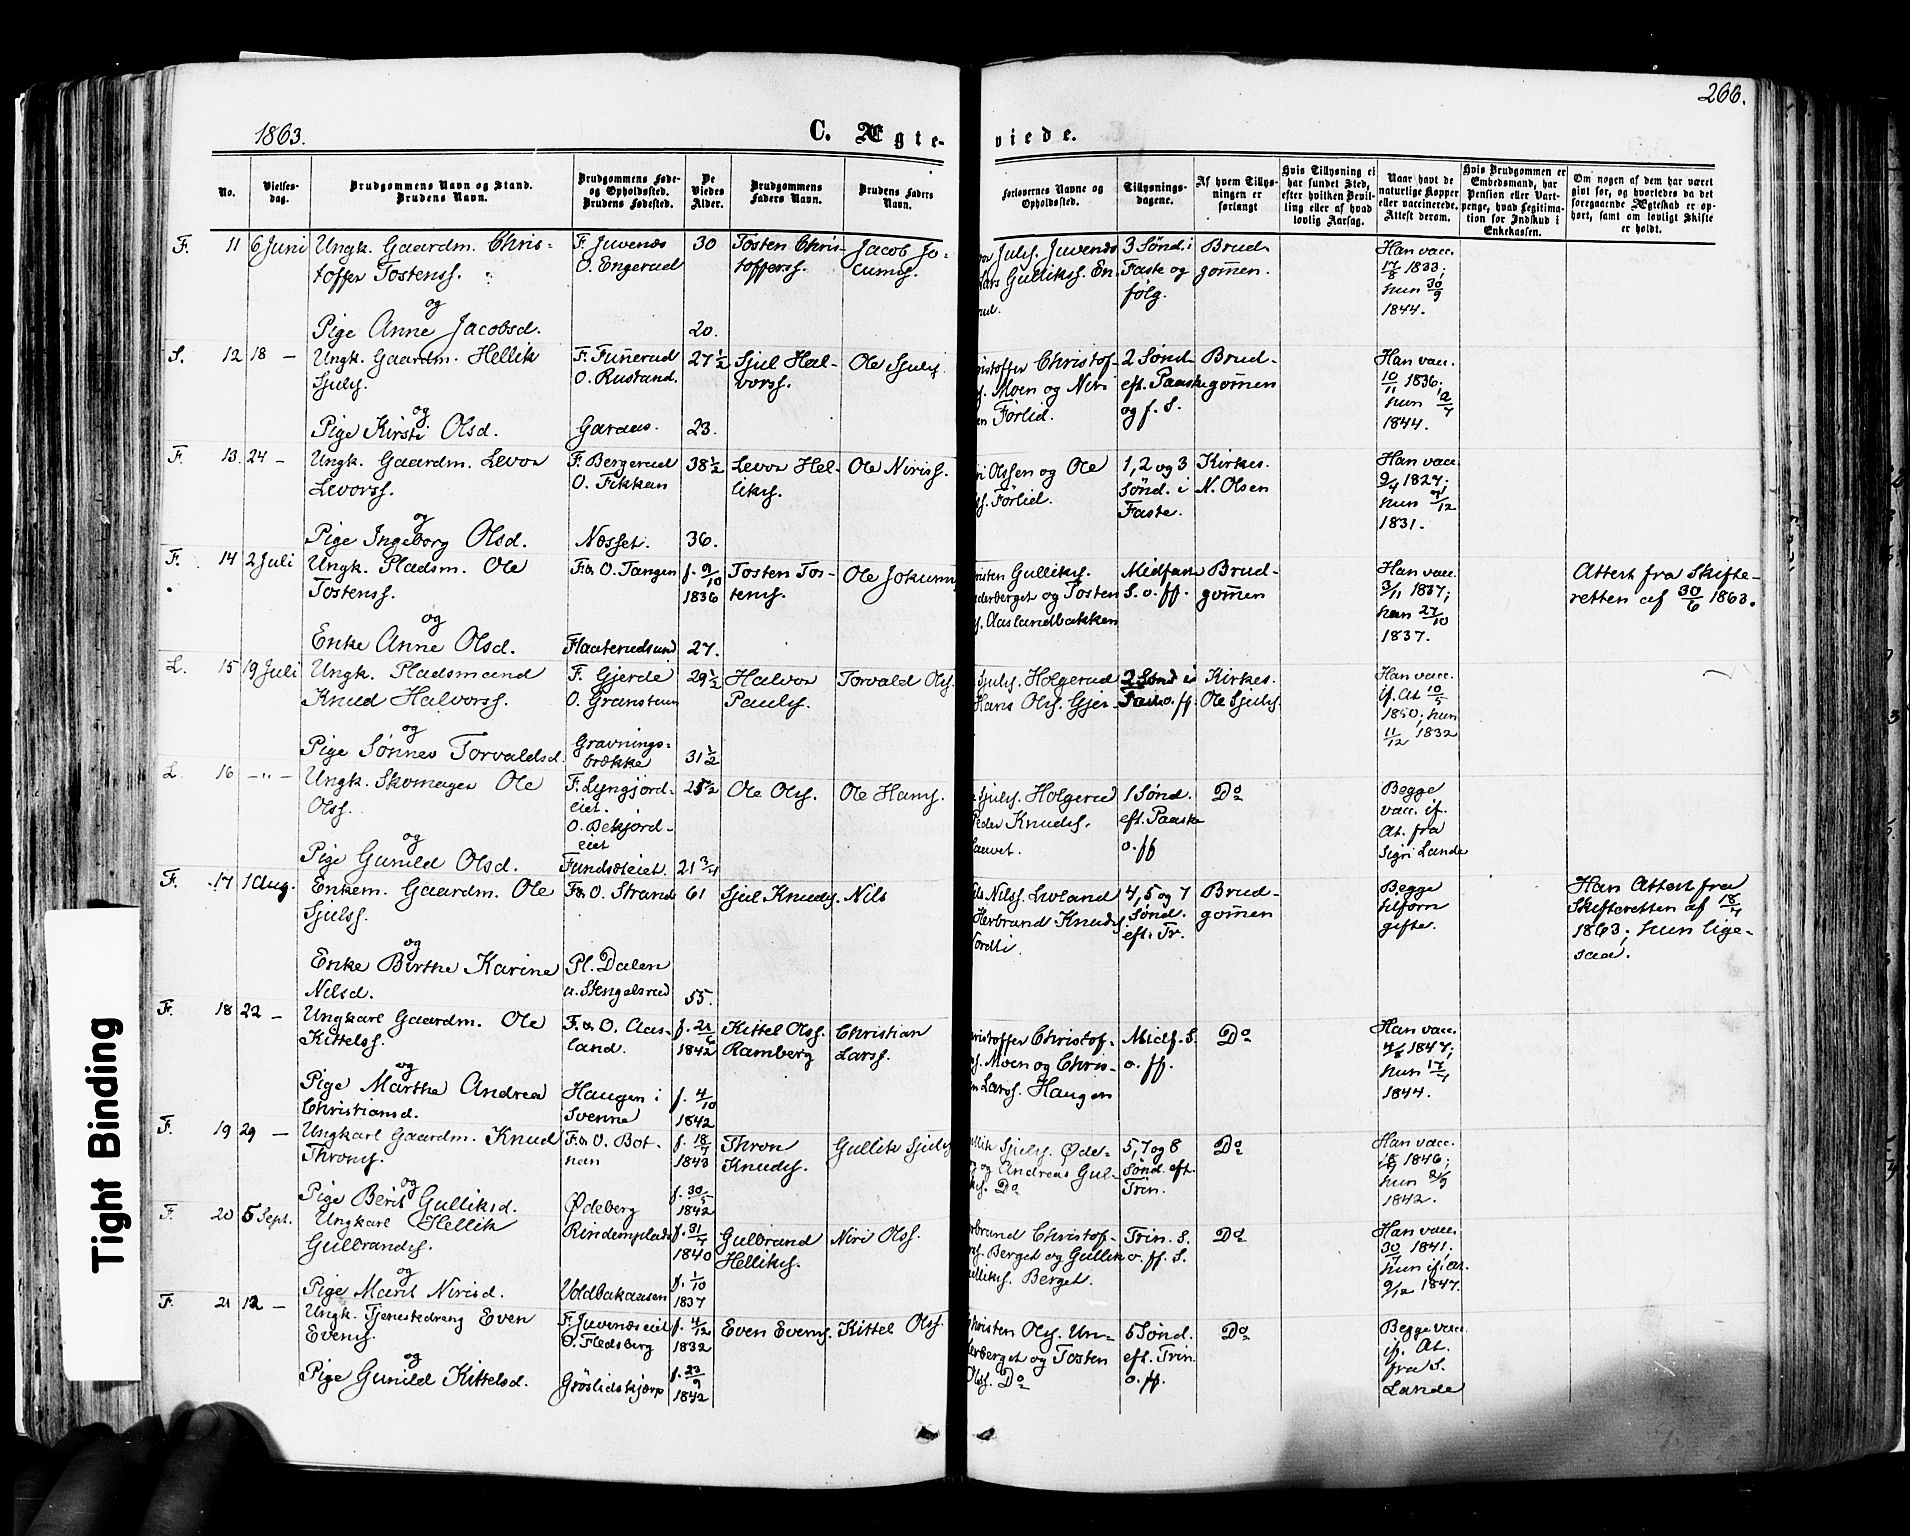 266.
1863.
C. Ægte-
viede.
No.
Vielses-
dag.
Brudgommens Navn og Stand.
Brudens Navn.
Brudgommens Føde-
og Opholdssted.
Brudens Fødested.
De
Viedes
Alder.
Brudgommens
Faders Navn.
Brudens Faders
Navn.
Forlovernes Navne og
Opholdssted.
Tillysnings-
dagene.
Af hvem Tillys-
ningen er
forlangt
Hvis Tillysning ei
har fundet Sted,
efter hvilken Bevil-
ling eller af hvad
lovlig Aarsag.
Naar havt de
naturlige Kopper
eller vaccinerede.
Attest derom.
Hvis Brudgommen er
Embedsmand, har
Pension eller Vart-
penge, hvad Legitima-
tion for Indskud i
Enkekassen.
Om nogen af dem har været
gift før, og hvorledes da det
foregaaende Ægteskab er op-
hørt, samt om lovligt Skifte
er holdt.
F. 11 6 Juni Ungk. Gaardm. Chris-
toffer Tostenss.
og
Pige Anne Jacobsd.
F. Juvenæs
O. Engerud
30
20.
Tosten Chris-
tofferss.
Jacob Jo-
cumss.
Julss. Juvenæs
Lars Gullikss. En-
rud.
3 Sønd. i
Faste og
følg.
Brud-
gomen.
Han vacc.
17/8 1833;
hun 30/9
1844.
S. 12 18 — Ungk. Gaardm. Hellik
Sjulss.
og
Pige Kirsti Olsd.
F. Funerud
O. Rustand.
Garaas.
27 1/2
23.
Sjul Hal-
vorss.
Ole Sjulss.
ristoffer Christof-
s. Moen og Niri
en Førlid.
2 Sønd.
eft. Paaske
og f. S.
Brud-
gomen
Han vacc.
10/11 1836;
hun
1844.
F. 13 24 — Ungk. Gaardm. Levor
Levorss.
og
Pige Ingeborg Olsd.
F. Bergerud
O. Fikkan
Næsset.
38 1/2
36.
Levor Hel-
likss.
Ole Niriss.
ri Olssen og Ole
ss. Førlid.
1, 2 og 3
Sønd. i
Faste.
Kirkes.
N. Olsen
Han vacc.
9/4 1827;
hun
1831.
F. 14 2 Juli Ungk. Pladsm. Ole
Tostenss.
og
Enke Anne Olsd.
F. & O. Tangen
Flaaterudsund
f. 9/10
1836
27.
Tosten Tos-
tenss.
Ole Jokumss.
risten Gullikss.
derberget og Tosten
s. Aaslandbakken
Midfast
S. o. ff.
Brud-
gomen
Han vacc.
3/11 1837;
hun 27/10
1837.
Attest fra Skifte-
retten af 30/6 1863.
L. 15 19 Juli Ungk. Pladsmand
Knud Halvorss.
og
Pige Sønnev Torvaldsd.
F. Gjerde
O. Gransteen
Gravnings-
brække
29 1/2
31 1/2
Halvor
Paulss.
Torvald Olss.
Sjulss. Holgerud
Hans Olss. Gjer-
2 Sønd i
Fast. o. ff.
Kirkes.
Ole Sjulss.
Han vacc.
if. At 10/5
1850; hun
11/12 1832
L. 16 —〃— Ungk. Skomager Ole
Olss.
og
Pige Gunild Olsd.
F. Lyngjord-
eiet.
O. Bekjord-
eiet
Fundsæteiet.
25 1/2
21 3/4
Ole Olss.
Ole Hanss.
Sjulss. Holgerud
Peder Knudss.
1 Sønd.
eft. Paaske
o. ff
Do
Begge
vacc. if.
At. fra
Sigri Lande
F. 17 1 Aug. Enkem. Gaardm. Ole
Sjulss.
og
Enke Birthe Karine
Nilsd.
F. & O. Strand
Pl. Dalen
u. Stengelsrud
61
55.
Sjul Knudss.
Nils
ils Nilss. Livland
Herbrand Knudss.
Nordli.
4, 5 og 7
Sønd.
eft. Tr.
Brud-
gomen
Begge
tilforn
gifte.
Han Attest fra
Skifteretten af 18/7
1863; hun lige-
saa.
F. 18 22 — Ungkarl Gaardm. Ole
Kittelss.
og
Pige Marthe Andrea
Christiansd.
F. & O. Aas-
land.
Haugen i
Svenne
f. 21/6
1842
f. 4/10
1842
Kittel Olss.
Ramberg
Christian
Larss.
ristoffer Christof-
s. Moen og Chris-
n Larss. Haugen
Midf. S.
o. ff.
Do
Han vacc.
1847;
hun 17/7
1844.
F. 19 29 — Ungkarl Gaardm. Knud
Thronss.
og
Pige Berit Gulliksd.
F. & O. Bot-
nen
Ødeberg
f. 18/7
1843
f. 30/5
1842
Thron
Knudss.
Gullik Sjulss.
ullik Sjulss. Øde-
og Andreas Gul-
kss. Do
5, 7 og 8
Sønd. eft.
Trin.
Do
Han vacc.
1846;
hun 2/9
1842.
F. 20 5 Sept. Ungkarl Hellik
Gulbrandss.
og
Pige Marit Nirisd.
Rindemplads
Voldbakaasen
f. 31/7
1840
f. 1/10
1837
Gulbrand
Hellikss.
Niri Olss.
erbrand Christof-
rs. Berget og Gullik
ullikss. Berget.
Trin. S.
o. ff. S.
Do
Han vacc.
1841,
hun if. At.
9/12 1847.
F. 21 12 — Ungk. Tjenestedreng Even
Evenss.
og
Pige Gunild Kittelsd.
F. Juvenæseiet
O. Fledsberg
Grøslidskjærp
f. 4/12
1832
f. 23/9
1842
Even Evenss.
Kittel Olss.
hristen Olss. Un-
derberget og Tosten
Olss. Do
5 Sønd.
eft. Trin.
o. ff.
Do
Begge vacc.
if. At.
fra S.
Lande
Tight Binding